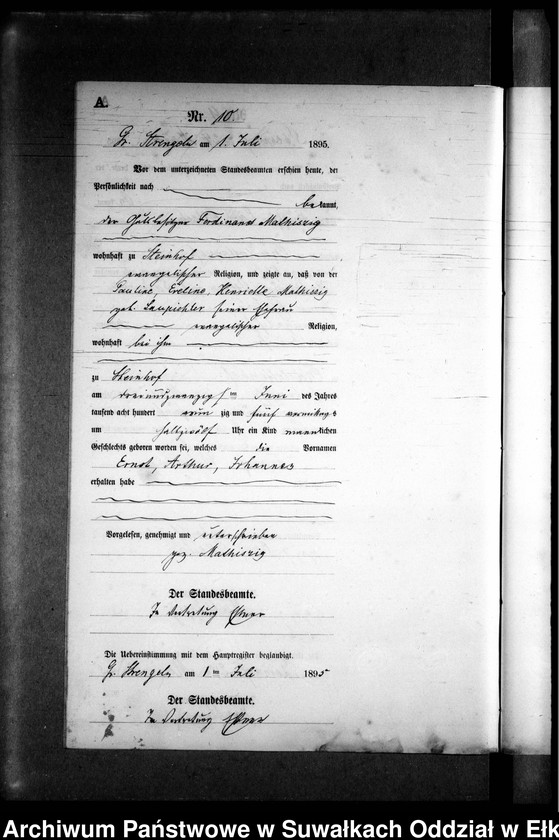 A.
Nr. 10.
Gr. Strengeln am 1. Juli 1895.
Vor dem unterzeichneten Standesbeamten erschien heute, der
Persönlichkeit nach
bekannt,
der Gutsbesitzer Ferdinand Mathiszig
wohnhaft zu Steinhof
evangelischer Religion, und zeigte an, daß von der
Pauline, Eveline, Henriette Mathiszig
geb. seiner Ehefrau
evangelischer Religion,
wohnhaft bei ihm
zu Steinhof
am dreiundzwanzigsten Juni des Jahres
tausend acht hundert neun zig und fünf vormittags
um halbzwölf Uhr ein Kind männlichen
Geschlechts geboren worden sei, welches die Vornamen
Ernst, Arthur, Johannes
erhalten habe
Vorgelesen, genehmigt und unterschrieben
gez. Mathiszig
Der Standesbeamte.
In Vertretung
Die Uebereinstimmung mit dem Hauptregister beglaubigt.
Gr. Strengeln am 1ten Juli 1895
Der Standesbeamte.
In Vertretung
Archiwum Państwowe w Suwałkach Oddział w Ełk